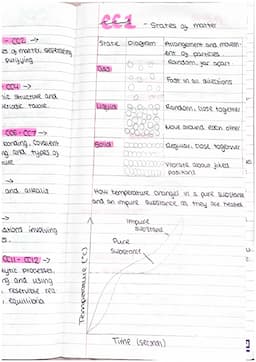 CC1 - States of matter
- CC2 →
es of matter, separating
purifying
- CC4 →
ic structure and
periodic table.
CC5 - CC7 →
bonding, covalent
ng, and types of
and alkalis
ations involving
s.
CC11 - CC12 →
lytic processes,
ng and using
, reversible rea
, equilibria
State Diagram Arrangement and movem-
ent of particles
Gas Random, far apart
Fast in all directions
Liquid Random, close together
Move around each other
Solid Regular, close together
Vibrate about fixed
positions
How temperature changes in a pure substance
and an impure substance as they are heated
Impure
Substance
Pure
Substance
Temperature (°C)
Time (seconds)